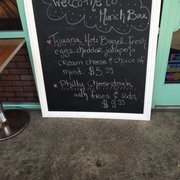 Welcome to
Munch Box
Tijuana Hots Bagel. Fresh
eggs, cheddar, jalapeño
cream cheese & choice of
meat $5.99
Philly Cheesesteak
with fries & soda
$9.99